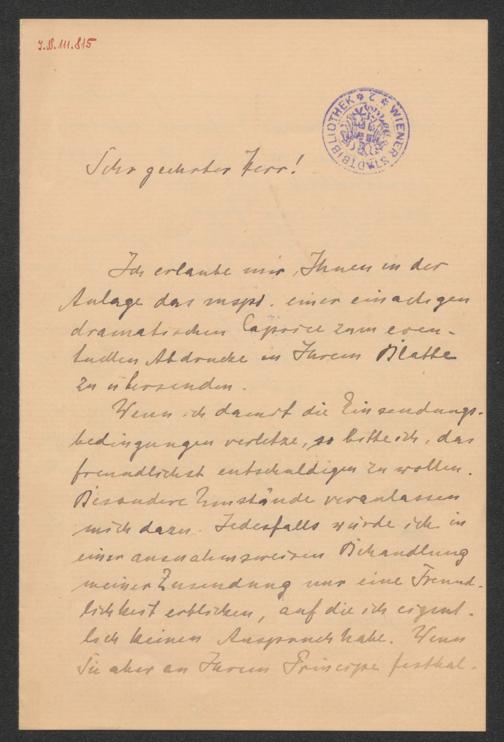 J.N. 111.815
WIENER STADTBIBLIOTHEK
Sehr geehrter Herr!
Ich erlaube mir, Ihnen in der
Anlage das mspt. einer einactigen
dramatischen Caprice zum even-
tuellen Abdrucke in Ihrem Blatte
zu übersenden.
Wenn ich damit die Einsendungs-
bedingungen verletze, so bitte ich, das
freundlichst entschuldigen zu wollen.
Besondere Umstände veranlassen
mich dazu. Jedesfalls würde ich in
einer ausnahmsweisen Behandlung
meiner Zusendung nur eine Freund-
lichkeit erblicken, auf die ich eigent-
lich keinen Anspruch habe. Wenn
Sie aber an Ihrem Principe festhal-